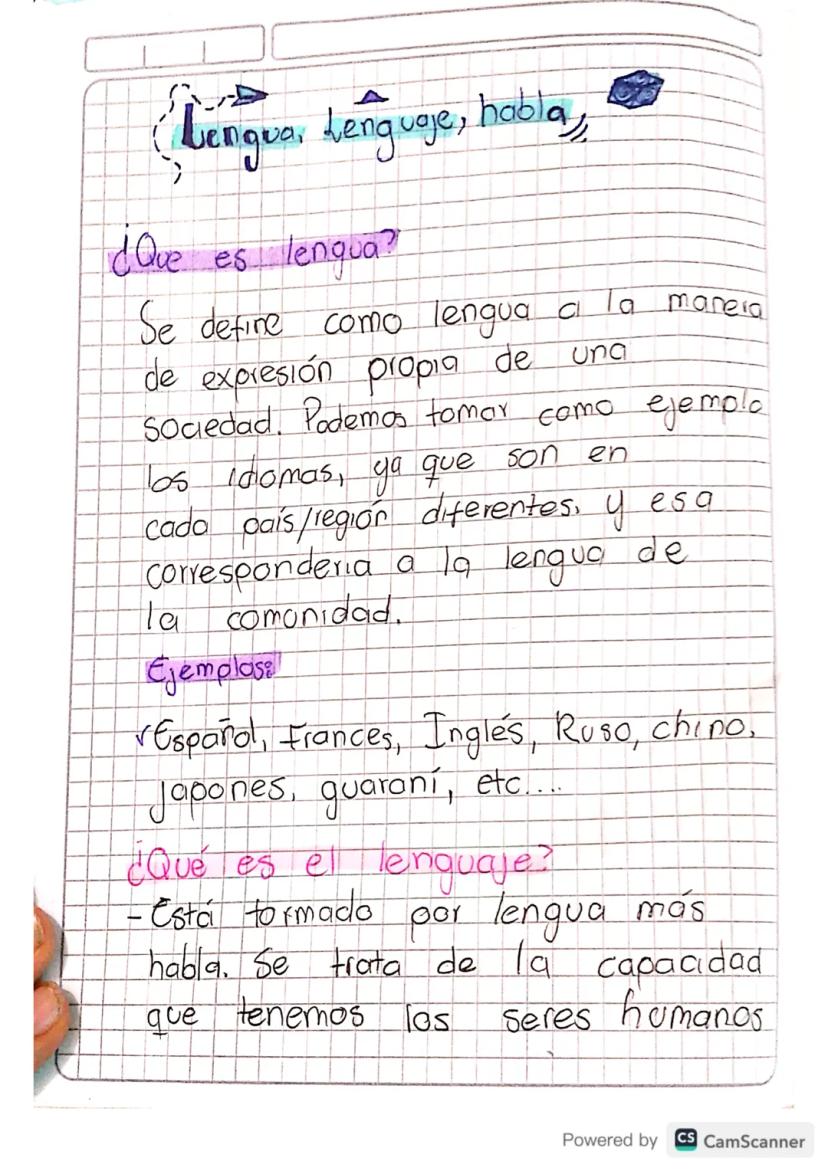 Lengua, Lenguaje, habla
¿Que es lengua?
Se define como lengua a la manera
de expresión propia de una
sociedad. Podemos tomar como ejemplo
los idomas, ya que son en
cada país/región diferentes, y esa
correspondería a la lengua de
la comunidad.
Ejemplos:
✓Español, Frances, Inglés, Ruso, chino,
Japones, guaraní, etc....
¿Qué es el lenguaje?
- Está formado por lengua más
habla. Se trata de la capacidad
que tenemos los seres humanos
Powered by CS CamScanner